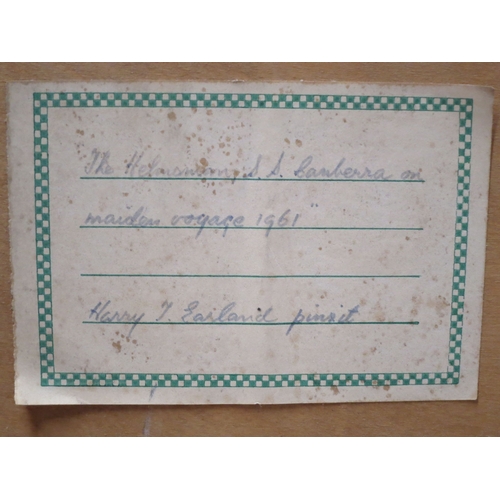 The Helmsman, S.S. Canberra on
maiden voyage 1961"
Harry T. Earland pinxit